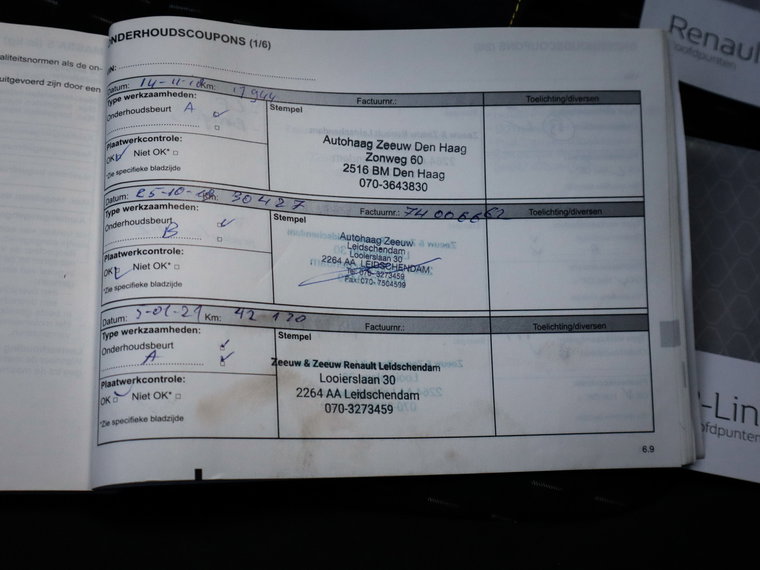 ONDERHOUDSCOUPONS (1/6)
aliteitsnormen als de on-
uitgevoerd zijn door een
Datum: 14-11- Km: 17944
Type werkzaamheden:
Factuurnr.:
Toelichting/diversen
Onderhoudsbeurt A
Stempel
Plaatwerkcontrole:
OK Niet OK*
*Zie specifieke bladzijde
Autohaag Zeeuw Den Haag
Zonweg 60
2516 BM Den Haag
070-3643830
Datum: 25-10- Km: 30427
Type werkzaamheden:
Factuurnr.:
Toelichting/diversen
Onderhoudsbeurt
B
Stempel
Plaatwerkcontrole:
OK Niet OK*
*Zie specifieke bladzijde
Autohaag Zeeuw
Leidschendam
Looierslaan 30
2264 AA LEIDSCHENDAM
Tel: 070-3273459
Fax: 070-7504599
Datum: 5-01-21 Km: 42 120
Type werkzaamheden:
Factuurnr.:
Toelichting/diversen
Onderhoudsbeurt
A
Stempel
Plaatwerkcontrole:
OK Niet OK*
*Zie specifieke bladzijde
Zeeuw & Zeeuw Renault Leidschendam
Looierslaan 30
2264 AA Leidschendam
070-3273459
6.9
Renaul
oofdpunten
-Lin
ofdpunten